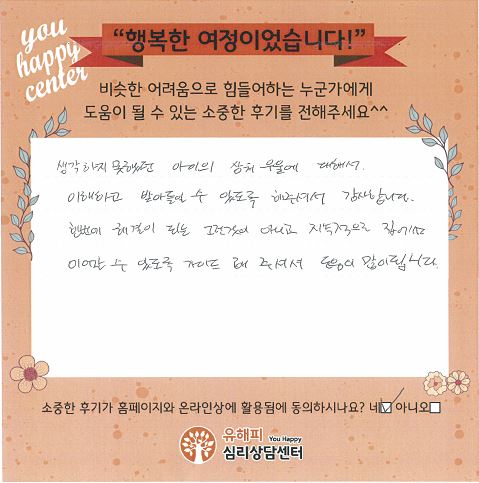 you
happy
center
“행복한 여정이었습니다!”
비슷한 어려움으로 힘들어하는 누군가에게
도움이 될 수 있는 소중한 후기를 전해주세요^^
생각하지 못했던 아이의 상처 우울에 대해서.
이해하고 받아들일 수 있도록 해주셔서 감사합니다.
한번에 해결이 되는 아니고 지속적으로 집에서
이어갈 수 있도록 가이드 해 주셔서 도움이 많이됩니다.
소중한 후기가 홈페이지와 온라인상에 활용됨에 동의하시나요? 네☑ 아니오□
유해피 You Happy
심리상담센터